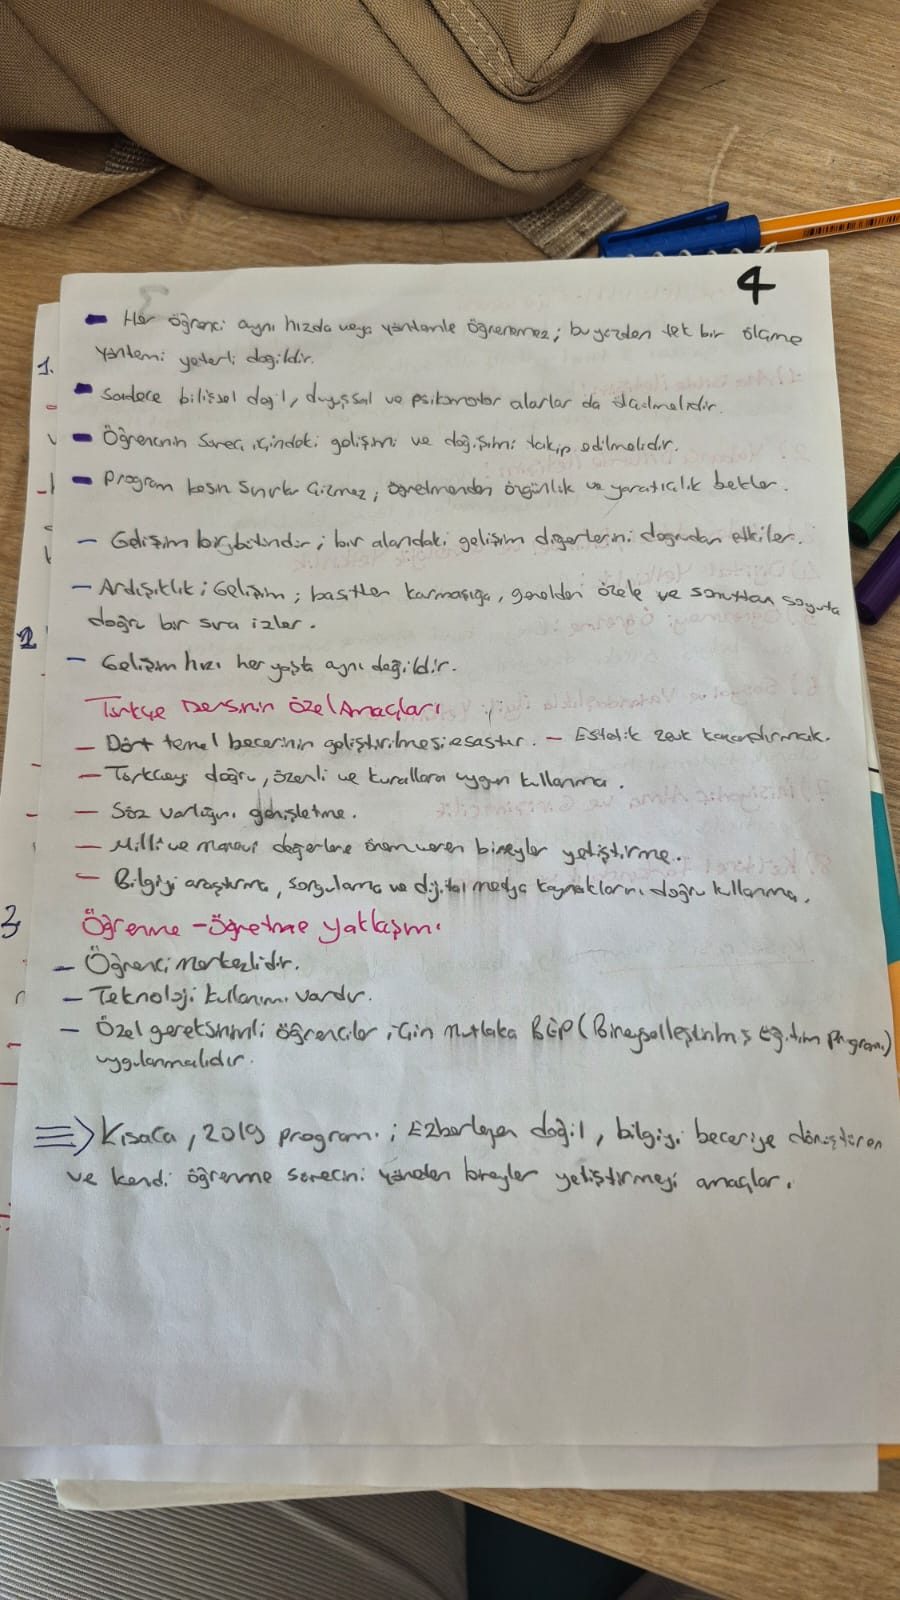 4
Her öğrenci aynı hızda veya yöntemle öğrenemez; bu yüzden tek bir ölçme
yöntemi yeterli değildir.
Sadece bilişsel değil, duyuşsal ve psikomotor alanlar da ölçülmelidir.
Öğrencinin süreç içindeki gelişimi ve değişimi takip edilmelidir.
Program kesin sınırlar çizmez; öğretmenden özgünlük ve yaratıcılık bekler.
- Gelişim bir bütündür; bir alandaki gelişim diğerlerini doğrudan etkiler.
- Ardışıklık; Gelişim; basitten karmaşığa, genelden özele ve somuttan soyuta
doğru bir sıra izler.
- Gelişim hızı her yaşta aynı değildir.
Türkçe Dersinin Özel Amaçları
- Dört temel becerinin geliştirilmesi esastır. - Estetik zevk kazandırmak.
- Türkçeyi doğru, özenli ve kurallara uygun kullanma.
- Söz varlığını genişletme.
- Milli ve manevi değerlere önem veren bireyler yetiştirme.
- Bilgiyi araştırma, sorgulama ve dijital medya kaynaklarını doğru kullanma.
Öğrenme - Öğretme Yaklaşımı
- Öğrenci Merkezlidir.
- Teknoloji kullanımı vardır.
- Özel gereksinimli öğrenciler için mutlaka BEP (Bireyselleştirilmiş Eğitim Programı)
uygulanmalıdır.
⇒ Kısaca, 2019 programı; Ezberleyen değil, bilgiyi beceriye dönüştüren
ve kendi öğrenme sürecini yöneten bireyler yetiştirmeyi amaçlar.
1.
2
3